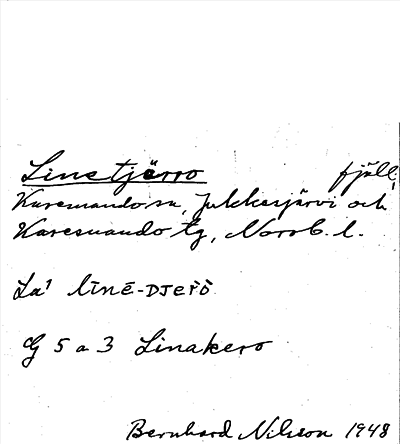 Linetjärro fjäll,
Karesuando sn, Jukkasjärvi och
Karesuando tg, Norrb. l.
La' līnē-DJeřò
G 5 a 3 Linakero
Bernhard Nilsson 1948